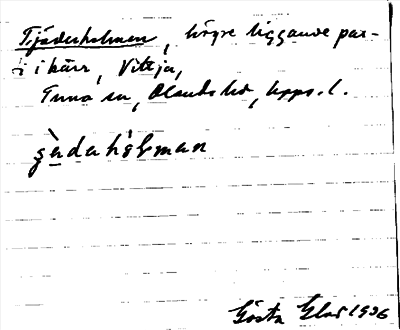 Tjäderholmen, högre liggande par-
ti i kärr, Vittja,
Tuna sn, Olands hd, Upps. l.
jä̀derhɔ́lmen
Gösta Glas 1936